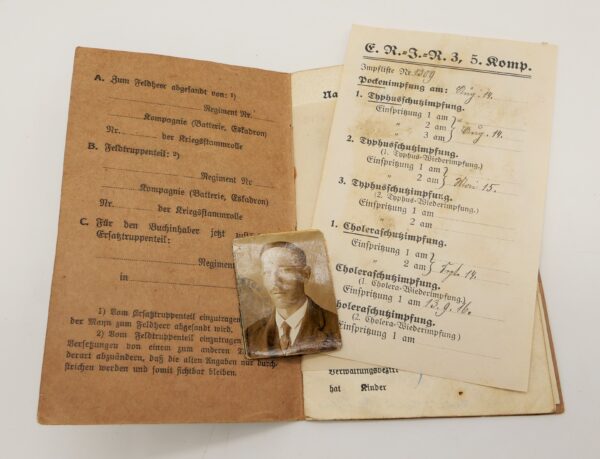 A. Zum Feldheer abgesandt von: ¹)
Regiment Nr.
Kompagnie (Batterie, Eskadron)
Nr. der Kriegsstammrolle
B. Feldtruppenteil: ²)
Regiment Nr
Kompagnie (Batterie, Eskadron)
Nr. der Kriegsstammrolle
C. Für den Buchinhaber jetzt
Ersatztruppenteil:
Regiment
in
1) Vom Ersatztruppenteil einzutragen
der Mann zum Feldheer abgesandt wird.
2) Vom Feldtruppenteil einzutragen
Versetzungen von einem zum anderen
derart abzuändern, daß die alten Angaben nur durch-
strichen werden und somit sichtbar bleiben.
Na
E. R.-J.-R. 3, 5. Komp.
Impfliste Nr. 1309
Pockenimpfung am: Aug. 14.
1. Typhusschutzimpfung.
Einspritzung 1 am
" 2 am
" 3 am Aug. 14.
2. Typhusschutzimpfung.
(1. Typhus-Wiederimpfung.)
Einspritzung 1 am
" 2 am 15.
3. Typhusschutzimpfung.
(2. Typhus-Wiederimpfung.)
Einspritzung 1 am
" 2 am
1. Choleraschutzimpfung.
Einspritzung 1 am
" 2 am 14.
Choleraschutzimpfung.
(1. Cholera-Wiederimpfung)
Einspritzung 1 am 13.9.16.
holeraschutzimpfung.
(2. Cholera-Wiederimpfung)
Einspritzung 1 am
Verwaltungsbezirk
hat Kinder